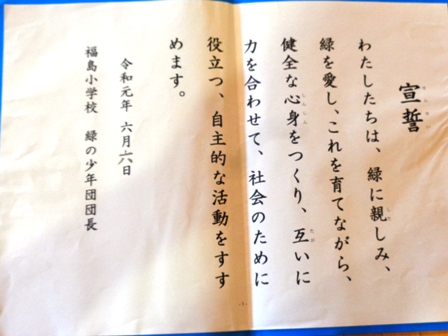 宣誓
わたしたちは、緑に親しみ、
緑を愛し、これを育てながら、
健全な心身をつくり、互いに
力を合わせて、社会のために
役立つ、自主的な活動をすす
めます。
令和元年 六月六日
福島小学校 緑の少年団団長